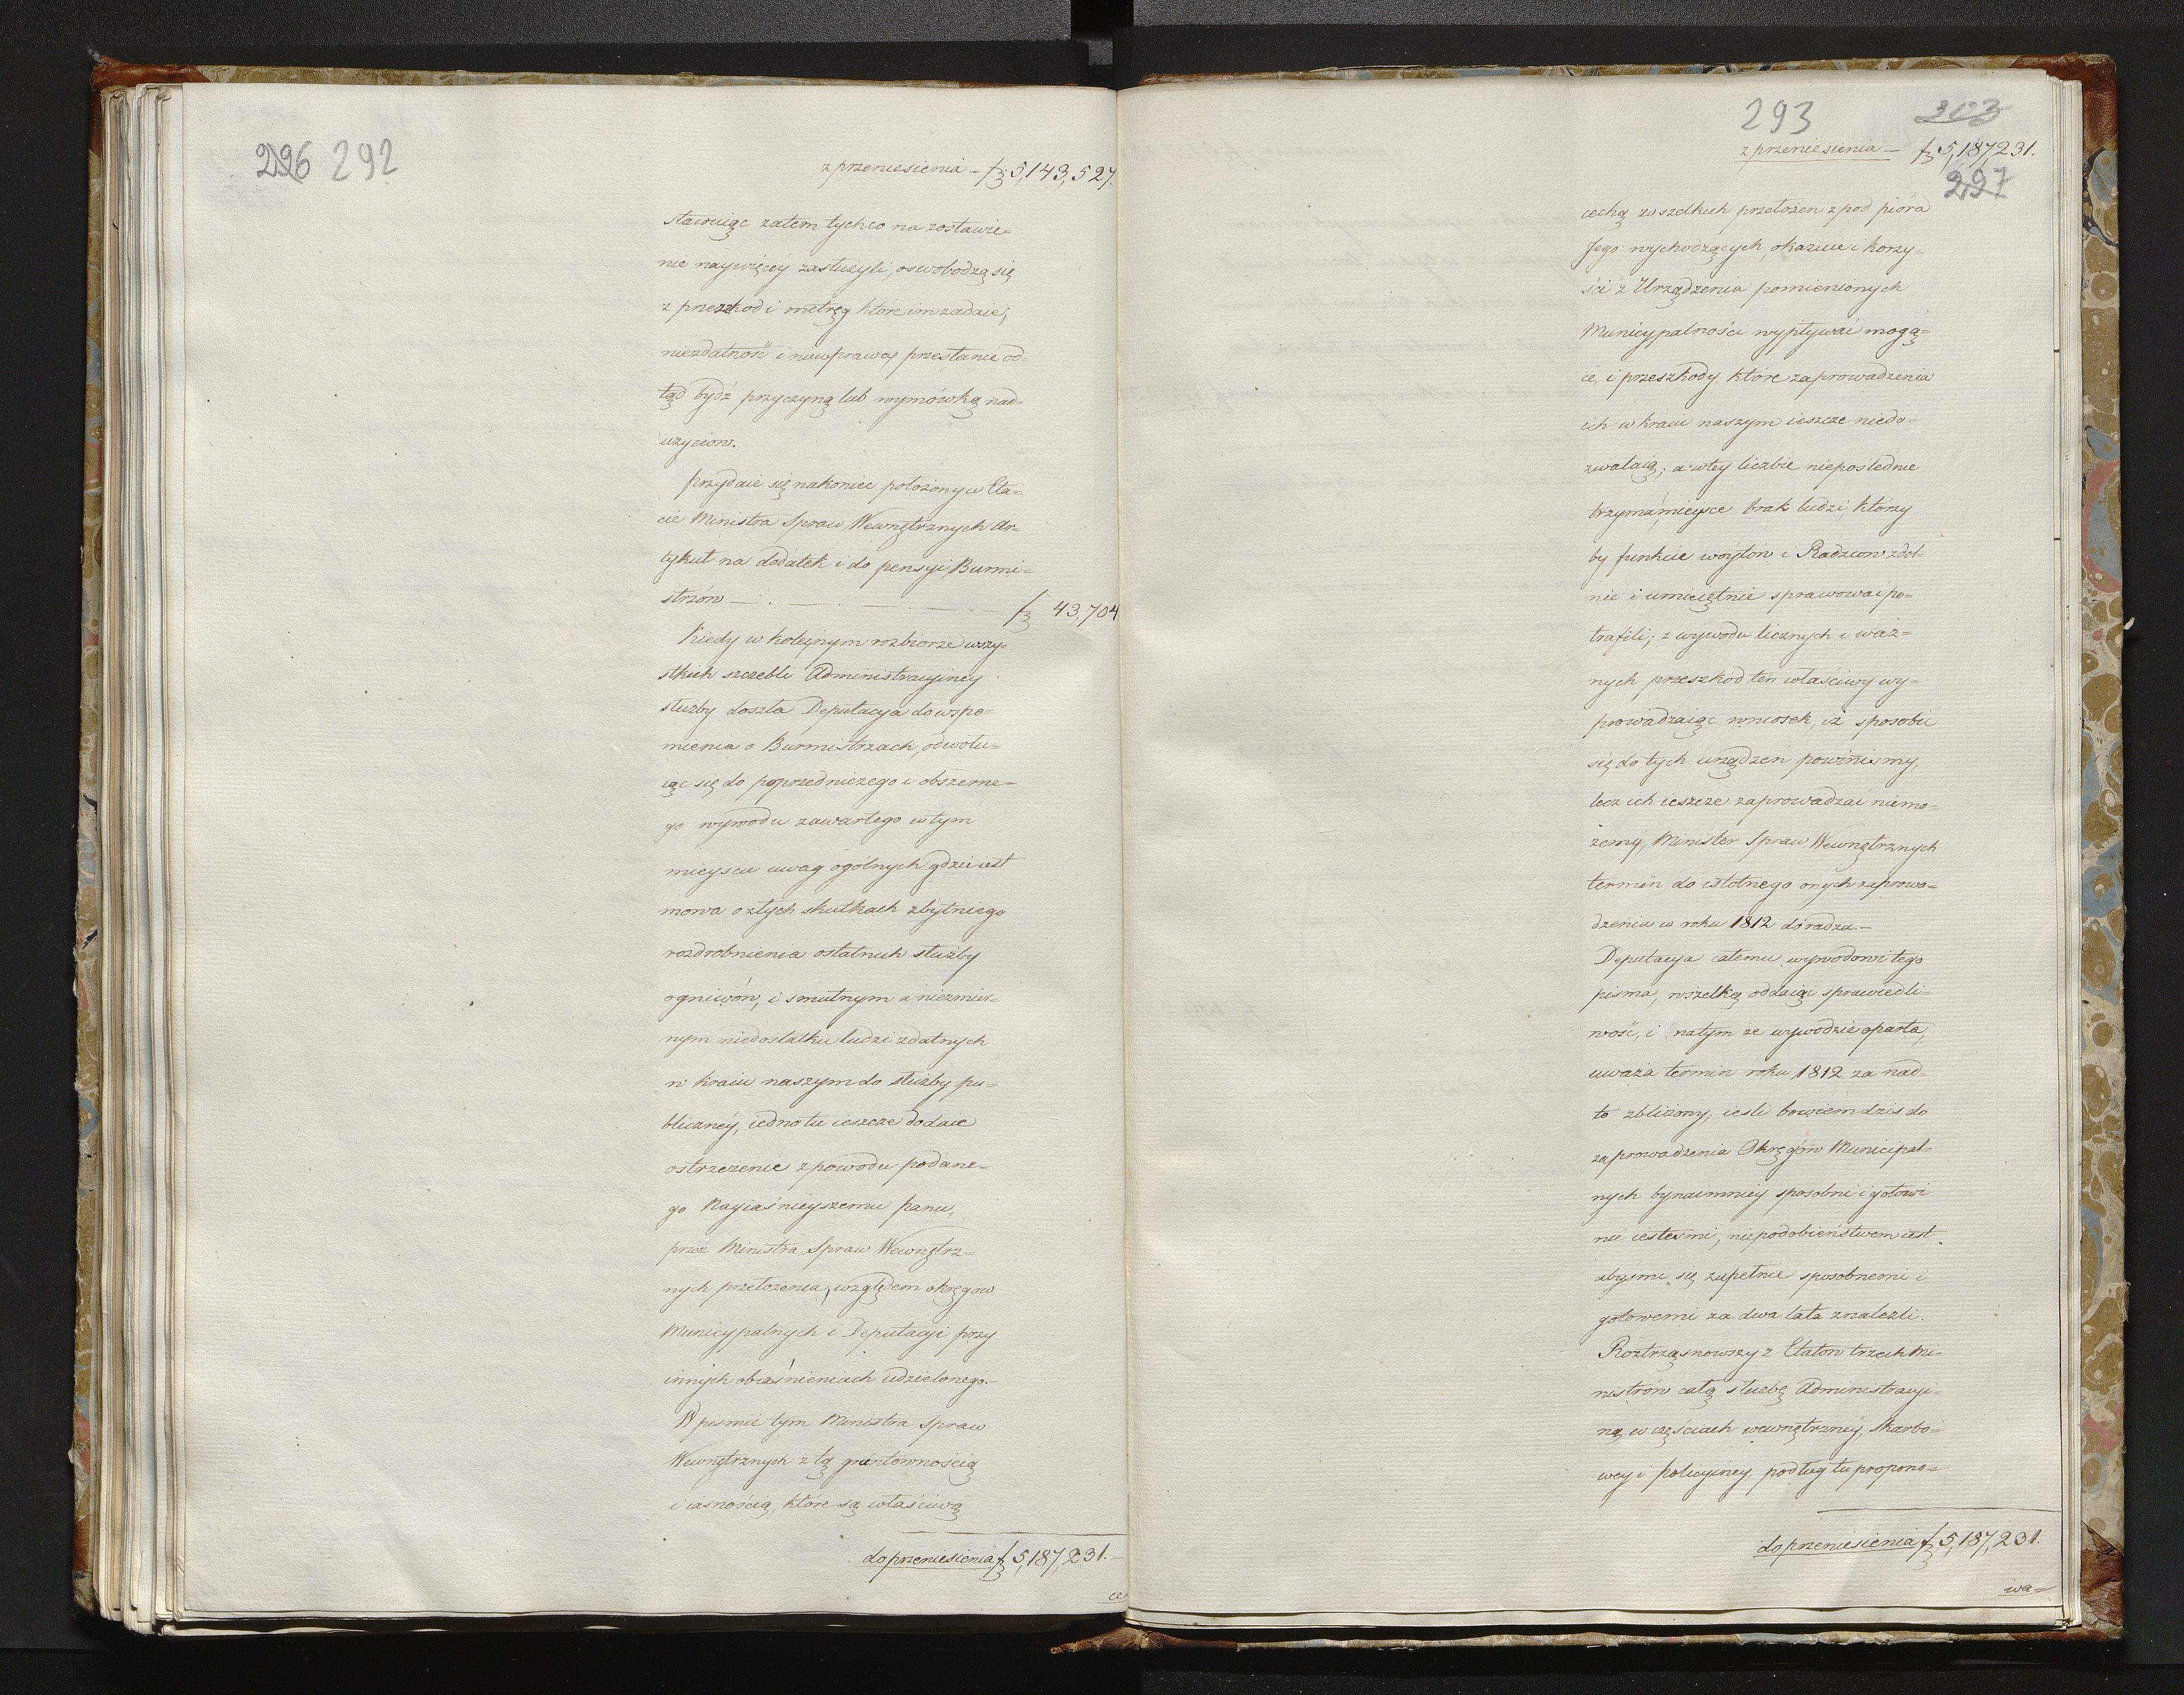 296 292
z przeniesienia - fz 5,143,527.
stawiąc zatem tych co na zostawie=
nie naywięcéy zasłużyli, oswobodzą się
z przeszkod i mitręg które im zadaie,
niezdatność i niewprawa, przestanie od=
tąd bydź przyczyną lub wymówką nad=
użyciow.
Przydaie się nakoniec położony w Eta=
cie Ministra Spraw Wewnętrznych Ar=
tykuł na dodatek i do pensyi Burmi=
strzów - . - - - - fz 43,704
Kiedy w koleynym rozbiorze wszy=
stkich szczebli Administracyiney
służby doszła Deputacya do wspo=
mienia o Burmistrzach, odwołu=
iąc się do poprzedniczego i obszerne=
go wywodu zawartego w tym
mieyscu uwag ogólnych gdzie iest
mowa o złych skutkach zbytniego
rozdrobnienia ostatnich służby
ogniwów, i smutnym a niezmier=
nym niedostatku ludzi zdatnych
w kraiu naszym do służby pu=
bliczney, iedno tu ieszcze dodaie
ostrzeżenie z powodu podane=
go Nayiaśnieyszemu Panu,
przez Ministra Spraw Wewnętrz=
nych przełożenia, względem okręgow
Municypalnych i Deputacyi przy
innych obiaśnieniach udzielonego.-
W pismie tym Ministra Spraw
Wewnętrznych z tą gruntownością
i iasnością, które są właściwą
do przeniesienia fz 5,187,231.-
ce
293 303
z przeniesienia - fz 5,187,231.
297
cechą wszelkich przełożen z pod pióra
Jego wychodzących, okazuie i korzy=
ści z Urządzenia pomienionych
Municypalności wypływać mogą=
ce, i przeszkody, które zaprowadzenia
ich w kraiu naszym ieszcze niedo=
zwalaią; a w tey liczbie niepoślednie
trzyma mieysce brak ludzi, którzy
by funkcie woytów i Radzcow zdol=
nie i umieiętnie sprawować po=
trafili; z wywodu licznych i waż=
nych przeszkod ten właściwy wy=
prowadzaiąc wniosek, iż sposobić
się do tych urządzeń powinismy,
lecz ich ieszcze zaprowadzać niemo=
żemy, Minister Spraw Wewnętrznych
termin do istotnego onych zaprowa=
dzenia w roku 1812 doradza.-
Deputacya całemu wywodowi tego
pisma, wszelką oddaiąc sprawiedli=
wość, i na tym że wywodzie oparta,
uważa termin roku 1812 za nad=
to zbliżony, iesli bowiem dzis do
zaprowadzenia Okręgów Municipal=
nych bynaimniey sposobni i gotowi
nie iestesmi, niepodobieństwem iest
abysmi się zupełnie sposobnemi i
gotowemi za dwa lata znalezli.
Roztrząsnowszy z Etatow trzech Mi=
nistrów całą służbę Administracyi=
ną w częściach wewnętrzney, Skarbo=
wey i Policyiney podług tu propono=
do przeniesienia fz 5,187,231.
wa=